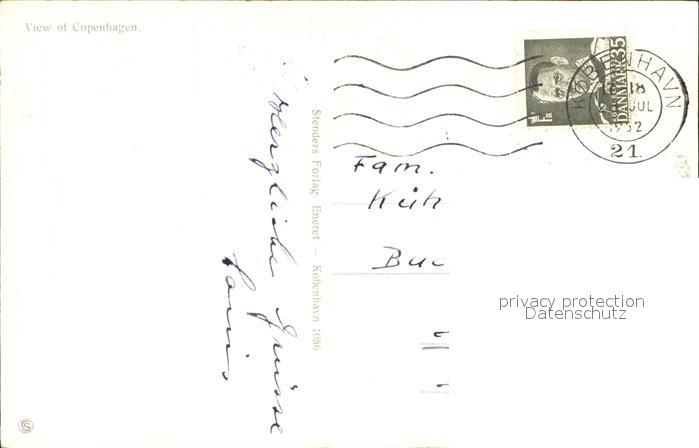 View of Copenhagen.
35
DANMARK
KØBENHAVN
18
JUL
1952
21.
Stenders Forlag Eneret — København 1056
Herzliche Grüsse
Fam.
Küh
Buc
privacy protection
Datenschutz